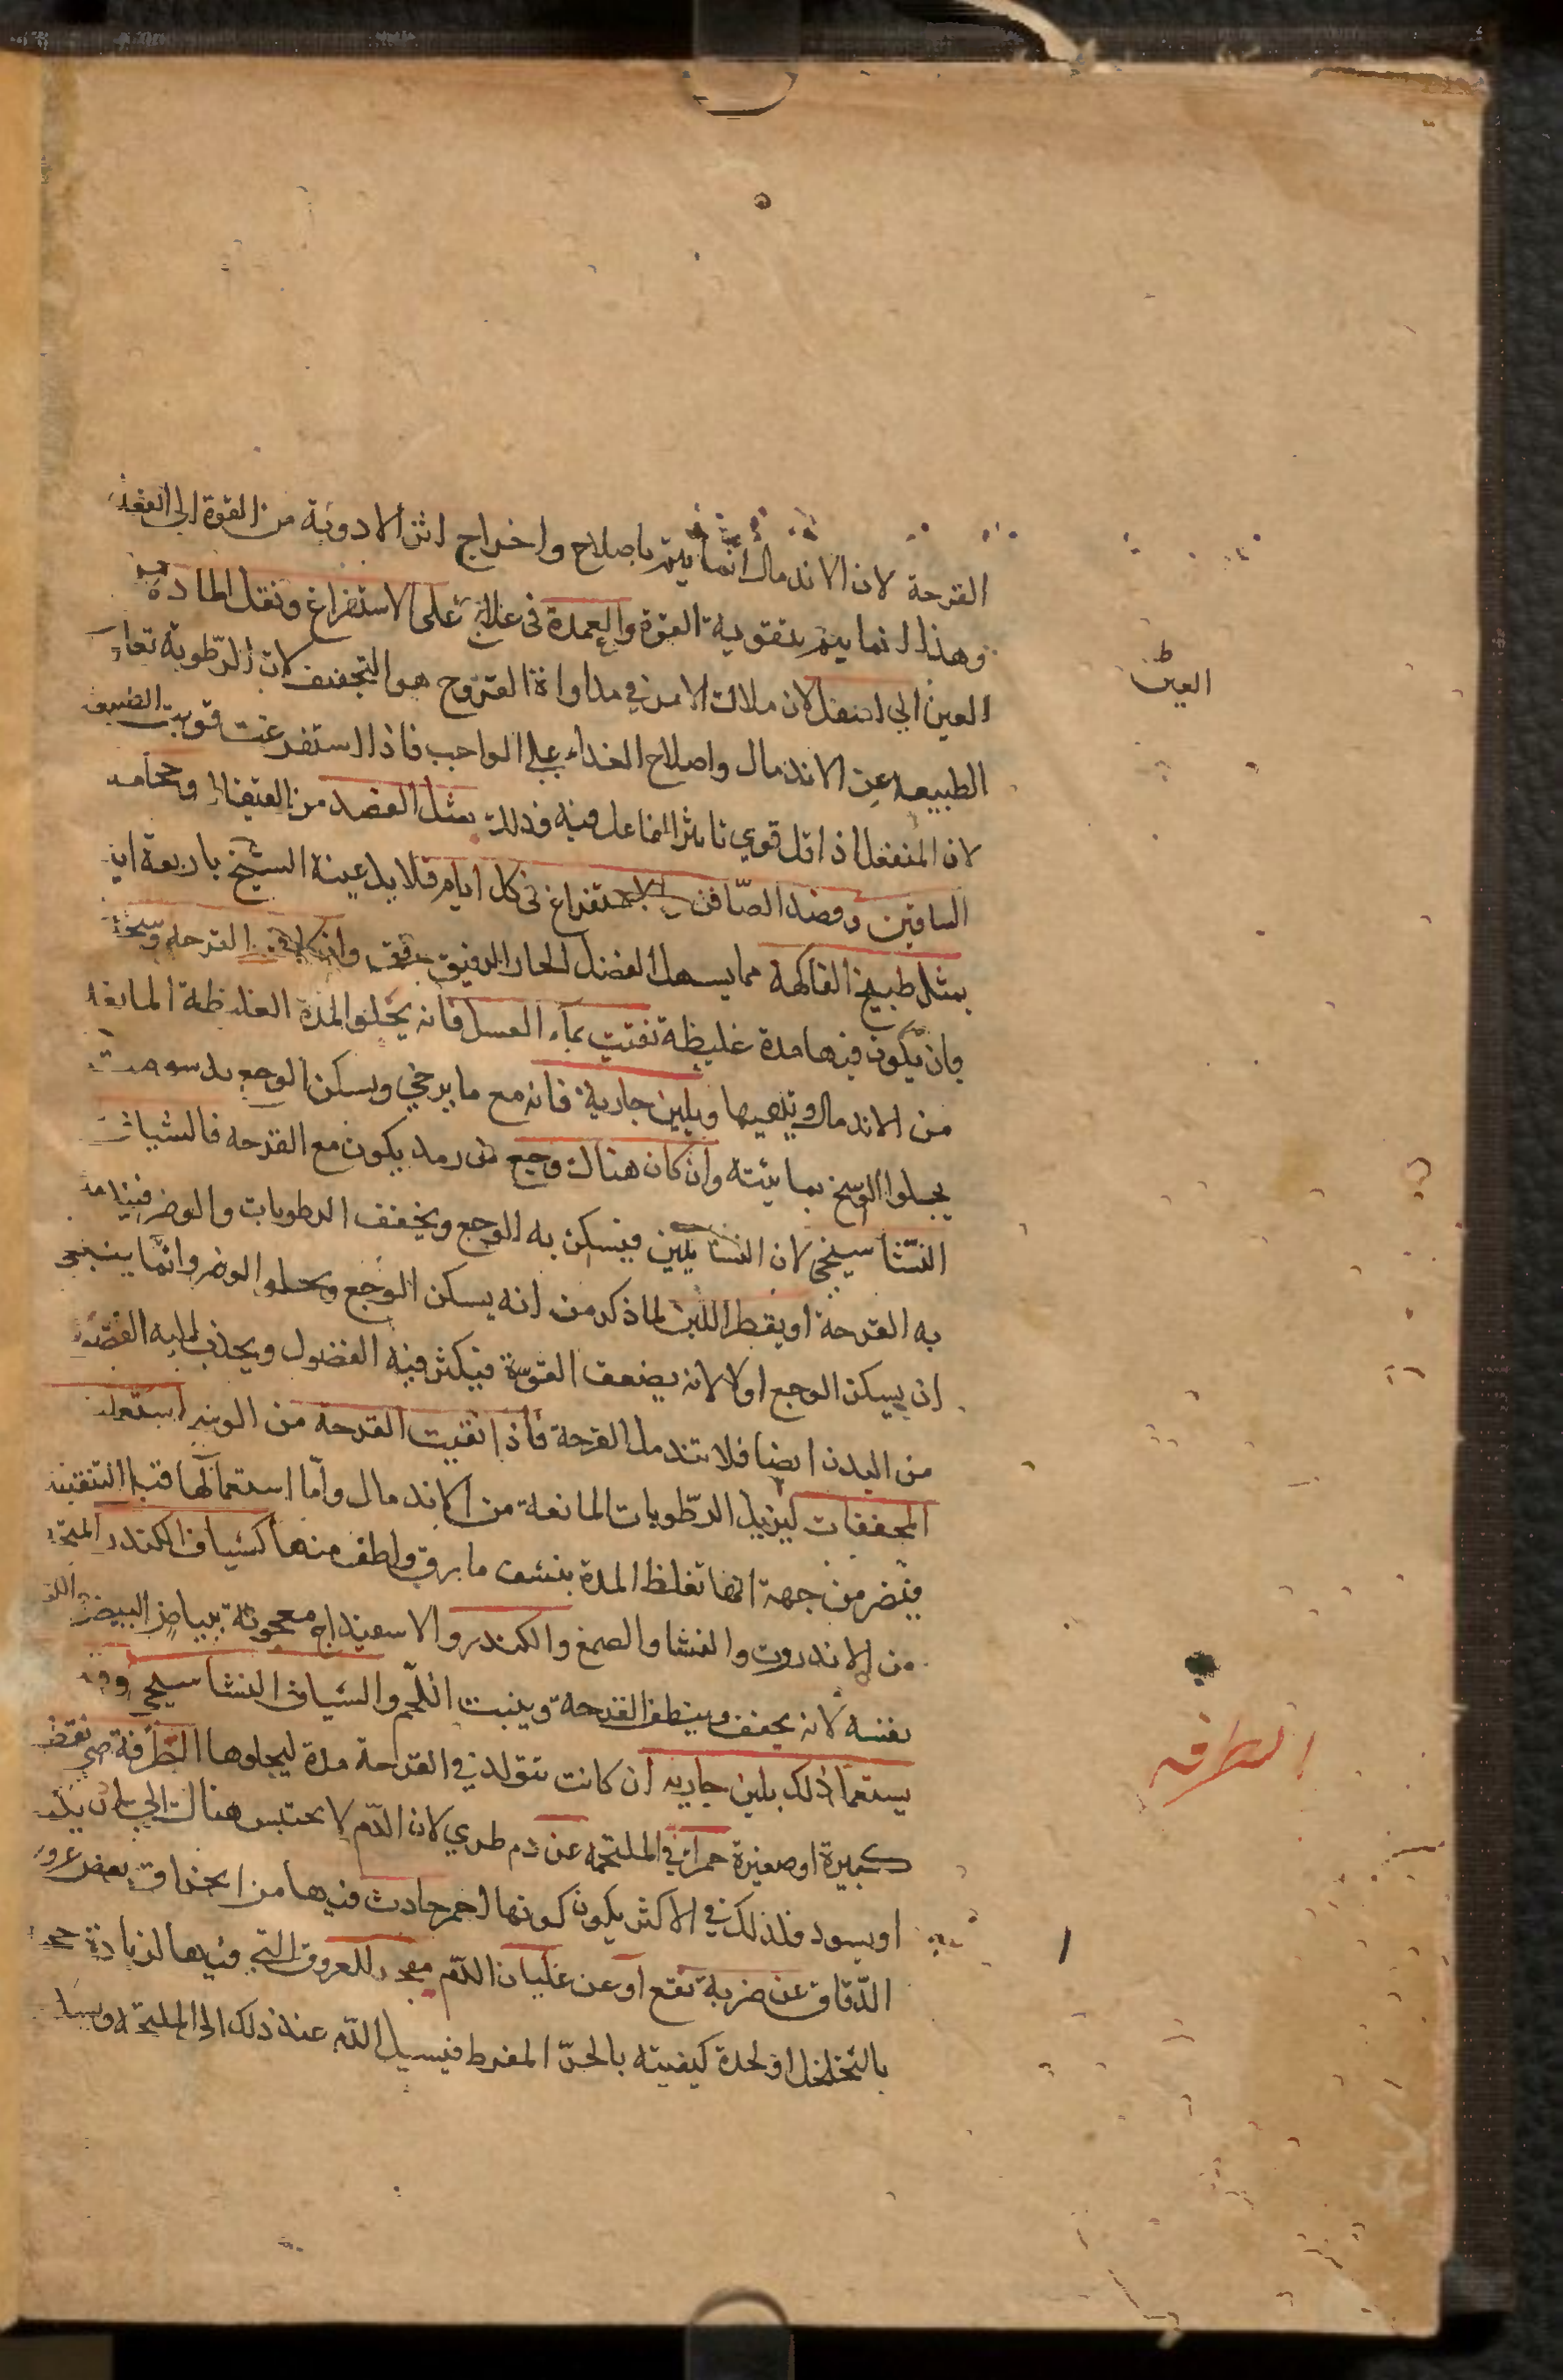 القرحة لان الاندمال انما يتم باصلاح واخراج اثر الادوية من القوة الى الفعل
وهذا انما يتم بتقوية القوة والعمدة فى علاج على الاستفراغ ونقل المادة من
العين الي اسفل لان ملاك الامر في مداواة القروح هو التجفيف لان الرطوبة تعاو
العين
الطبيعه عن الاندمال واصلاح الغذاء على الواجب فاذا استفرغت قويت الطبيعة
لان المنفعل اذا قل قوي تاثير الفاعل فيه وذلك بمثل الفصد من القيفال وحجامه
الساقين وفصد الصّافن والاستفراغ فى كل ايام قلايل عينة الشيخ باربعة ايا
بمثل طبيخ الفاكهة مما يسهل الفضل الحار الرقيق برفق وان كانت القرحه وسخة
وان يكون فيها مدة غليظة نقيت بماء العسل فانه يجلو المدة الغليظة المانعه
من الاندمال وينقيها وبلبن جارية فانه مع ما يرخي ويسكن الوجع بدسومته
يجلوا الوسخ بمائيته وان كان هناك وجع من رمد يكون مع القرحه فالشياف
النشاسيخي لان النشا يلين فيسكن به الوجع ويجفف الرطوبات والوضر فيندمل
به القرحة او يقطر اللبن لما ذكر من انه يسكن الوجع ويجلو الوضر وانما ينبغى
ان يسكن الوجع اولا لانه يضعف القوة فيكثر فيه الفضول ويجذب اليه الفضول
من البدن ايضا فلا تندمل القرحة فاذا نقيت القرحة من الوضر استعمل
المجففات ليزيل الرطوبات المانعة من الاندمال وامّا استعمالها قبل التنقية
فيضر من جهة انها تغلظ المدة بنشف ما يرق ولطف منها كشياف الكندر المتخذ
من الاندروت والنشا والصمغ والكندر والاسفيذاج معجونة ببياض البيض
نفسه لانه يجفف وينظف القرحة وينبت اللحم والشياف النشاسيجي وقد
يستعمل ذلك بلبن جاريه ان كانت تتولد في القرحة مدة ليجلوها الطرفة هي نقطة
الطرفه
كبيرة او صغيرة حمراء في الملتحمه عن دم طري لان الدم لا يحتبس هناك الى ان يكمد
او يسود فلذلك في الاكثر يكون كونها احمر حادث فيها من انخراق بعض عروق
الدقاق عن ضربة تقع او عن غليان الدم مفجر للعروق التي فيها لزيادة حجمه
بالتخلخل او لحدة كيفيته بالحرّ المفرط فيسيل الدم عند ذلك الى الملتحمه